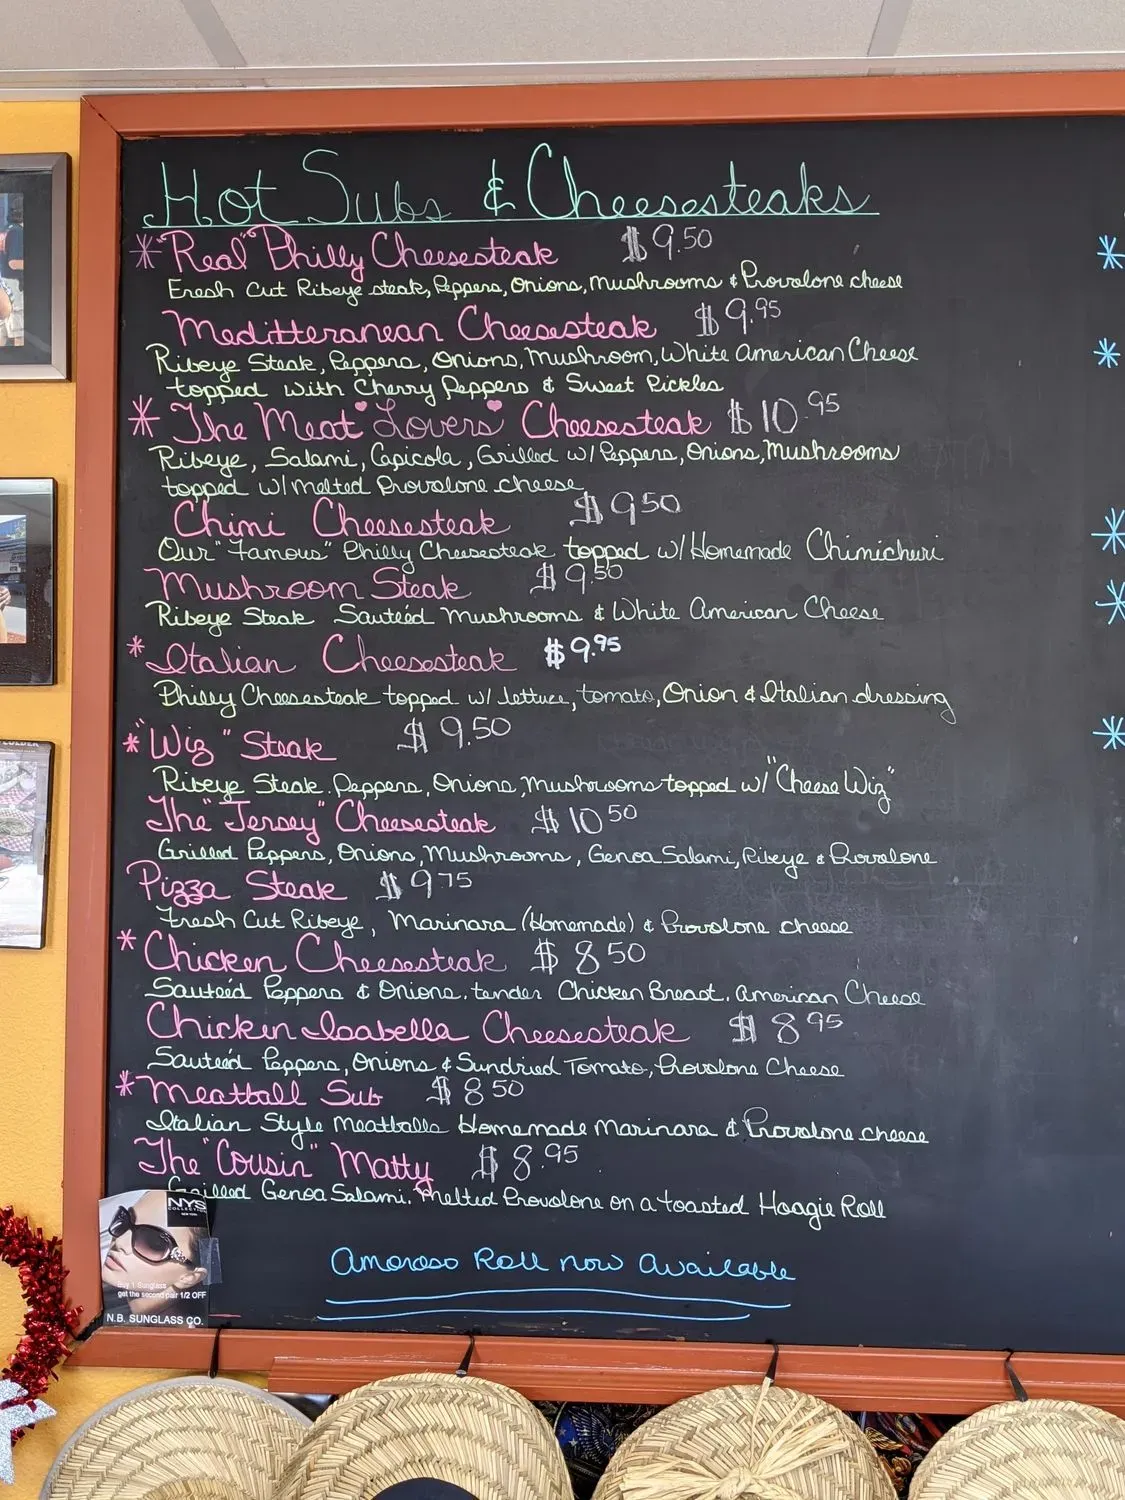 Hot Subs & Cheesesteaks
* "Real" Philly Cheesesteak $9.50
Fresh Cut Ribeye steak, Peppers, Onions, Mushrooms & Provolone cheese
Meditteranean Cheesesteak $9.95
Ribeye Steak, Peppers, Onions, Mushroom, White American Cheese
topped with Cherry Peppers & Sweet Pickles
* The Meat "Lovers" Cheesesteak $10.95
Ribeye, Salami, Capicola, Grilled w/ Peppers, Onions, Mushrooms
topped w/ melted Provolone cheese
Chimi Cheesesteak $9.50
Our "Famous" Philly Cheesesteak topped w/ Homemade Chimichuri
Mushroom Steak $9.50
Ribeye Steak Sauteéd Mushrooms & White American Cheese
* Italian Cheesesteak $9.95
Philly Cheesesteak topped w/ lettuce, tomato, Onion & Italian dressing
* "Wiz" Steak $9.50
Ribeye Steak. Peppers, Onions, Mushrooms topped w/ "Cheese Wiz"
The "Jersey" Cheesesteak $10.50
Grilled Peppers, Onions, Mushrooms, Genoa Salami, Ribeye & Provolone
Pizza Steak $9.75
Fresh Cut Ribeye, Marinara (Homemade) & Provolone cheese
* Chicken Cheesesteak $8.50
Sauteéd Peppers & Onions. tender Chicken Breast. American Cheese
Chicken Isabella Cheesesteak $8.95
Sauteéd Peppers, Onions & Sundried Tomato, Provolone Cheese
* Meatball Sub $8.50
Italian Style Meatballs Homemade Marinara & Provolone cheese
The "Cousin" Matty $8.95
Grilled Genoa Salami. Melted Provolone on a toasted Hoagie Roll
Amoroso Roll now Available
NYS
COLLECTION
NEW YORK
Buy 1 Sunglass
get the second pair 1/2 OFF
N.B. SUNGLASS CO.